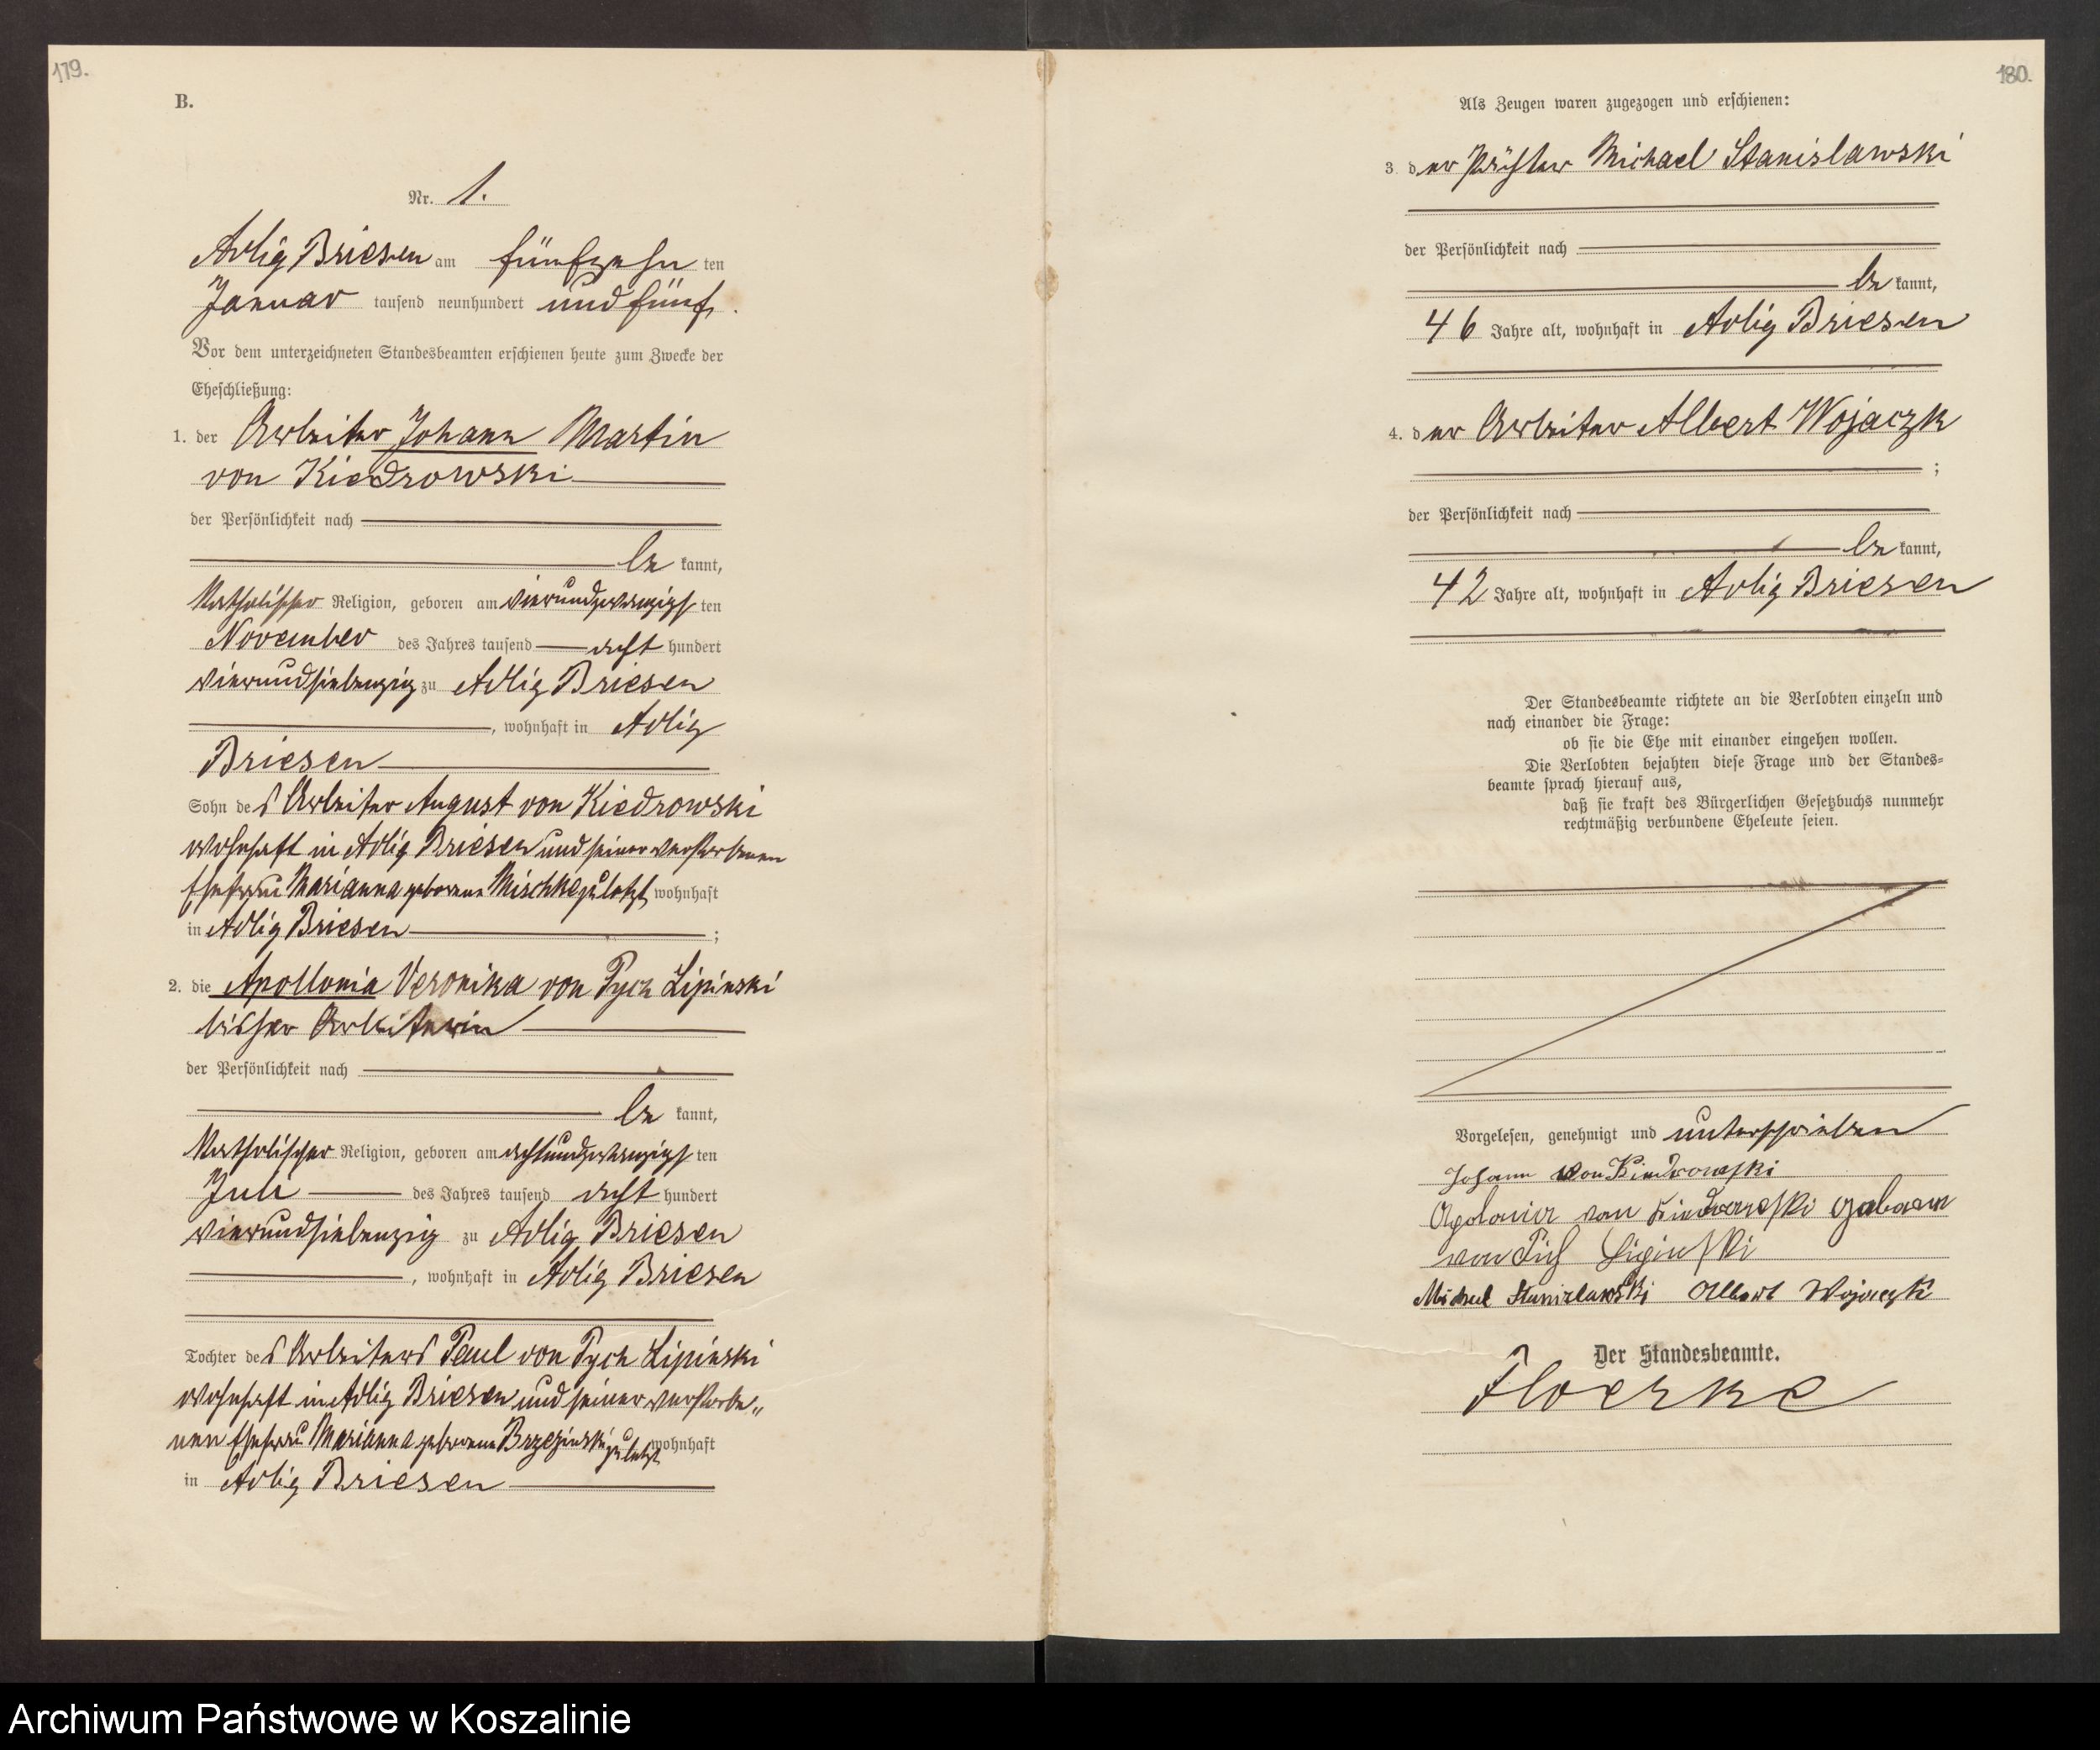 119.
B.
Nr. 1.
Adlig Briesen am fünfzehn ten
Januar tausend neunhundert und fünf.
Vor dem unterzeichneten Standesbeamten erschienen heute zum Zwecke der
Eheschließung:
1. der Arbeiter Johann Martin
von Kiedrowski
der Persönlichkeit nach
be kannt,
katholischer Religion, geboren am vierundzwanzigsten
November des Jahres tausend acht hundert
vierundsiebenzig zu Adlig Briesen
, wohnhaft in Adlig
Briesen
Sohn des Arbeiter August von Kiedrowski
wohnhaft in Adlig Briesen und seiner verstorbenen
Ehefrau Marianna geborene Mischke zuletzt wohnhaft
in Adlig Briesen ;
2. die Apollonia Veronika von Pych Lipinski
bisher Arbeiterin
der Persönlichkeit nach
be kannt,
katholischer Religion, geboren am achtundzwanzigsten
Juli des Jahres tausend acht hundert
vierundsiebenzig zu Adlig Briesen
, wohnhaft in Adlig Briesen
Tochter des Arbeiters Paul von Pych Lipinski
wohnhaft in Adlig Briesen und seiner verstorbe„
nen Ehefrau Marianna geborene Brzezinski zuletzt wohnhaft
in Adlig Briesen
180.
Als Zeugen waren zugezogen und erschienen:
3. der Michael Stanislawski
der Persönlichkeit nach
be kannt,
46 Jahre alt, wohnhaft in Adlig Briesen
4. der Arbeiter Albert Wojaczk
;
der Persönlichkeit nach
be kannt,
42 Jahre alt, wohnhaft in Adlig Briesen
Der Standesbeamte richtete an die Verlobten einzeln und
nach einander die Frage:
ob sie die Ehe mit einander eingehen wollen.
Die Verlobten bejahten diese Frage und der Standes=
beamte sprach hierauf aus,
daß sie kraft des Bürgerlichen Gesetzbuchs nunmehr
rechtmäßig verbundene Eheleute seien.
Vorgelesen, genehmigt und unterschrieben
Johann von Kiedrowski
Apolonia von Kiedrowski geboren
von Pich Lipinski
Michael Stanislawski Albert Wojaczk
Der Standesbeamte.
Floerke
Archiwum Państwowe w Koszalinie